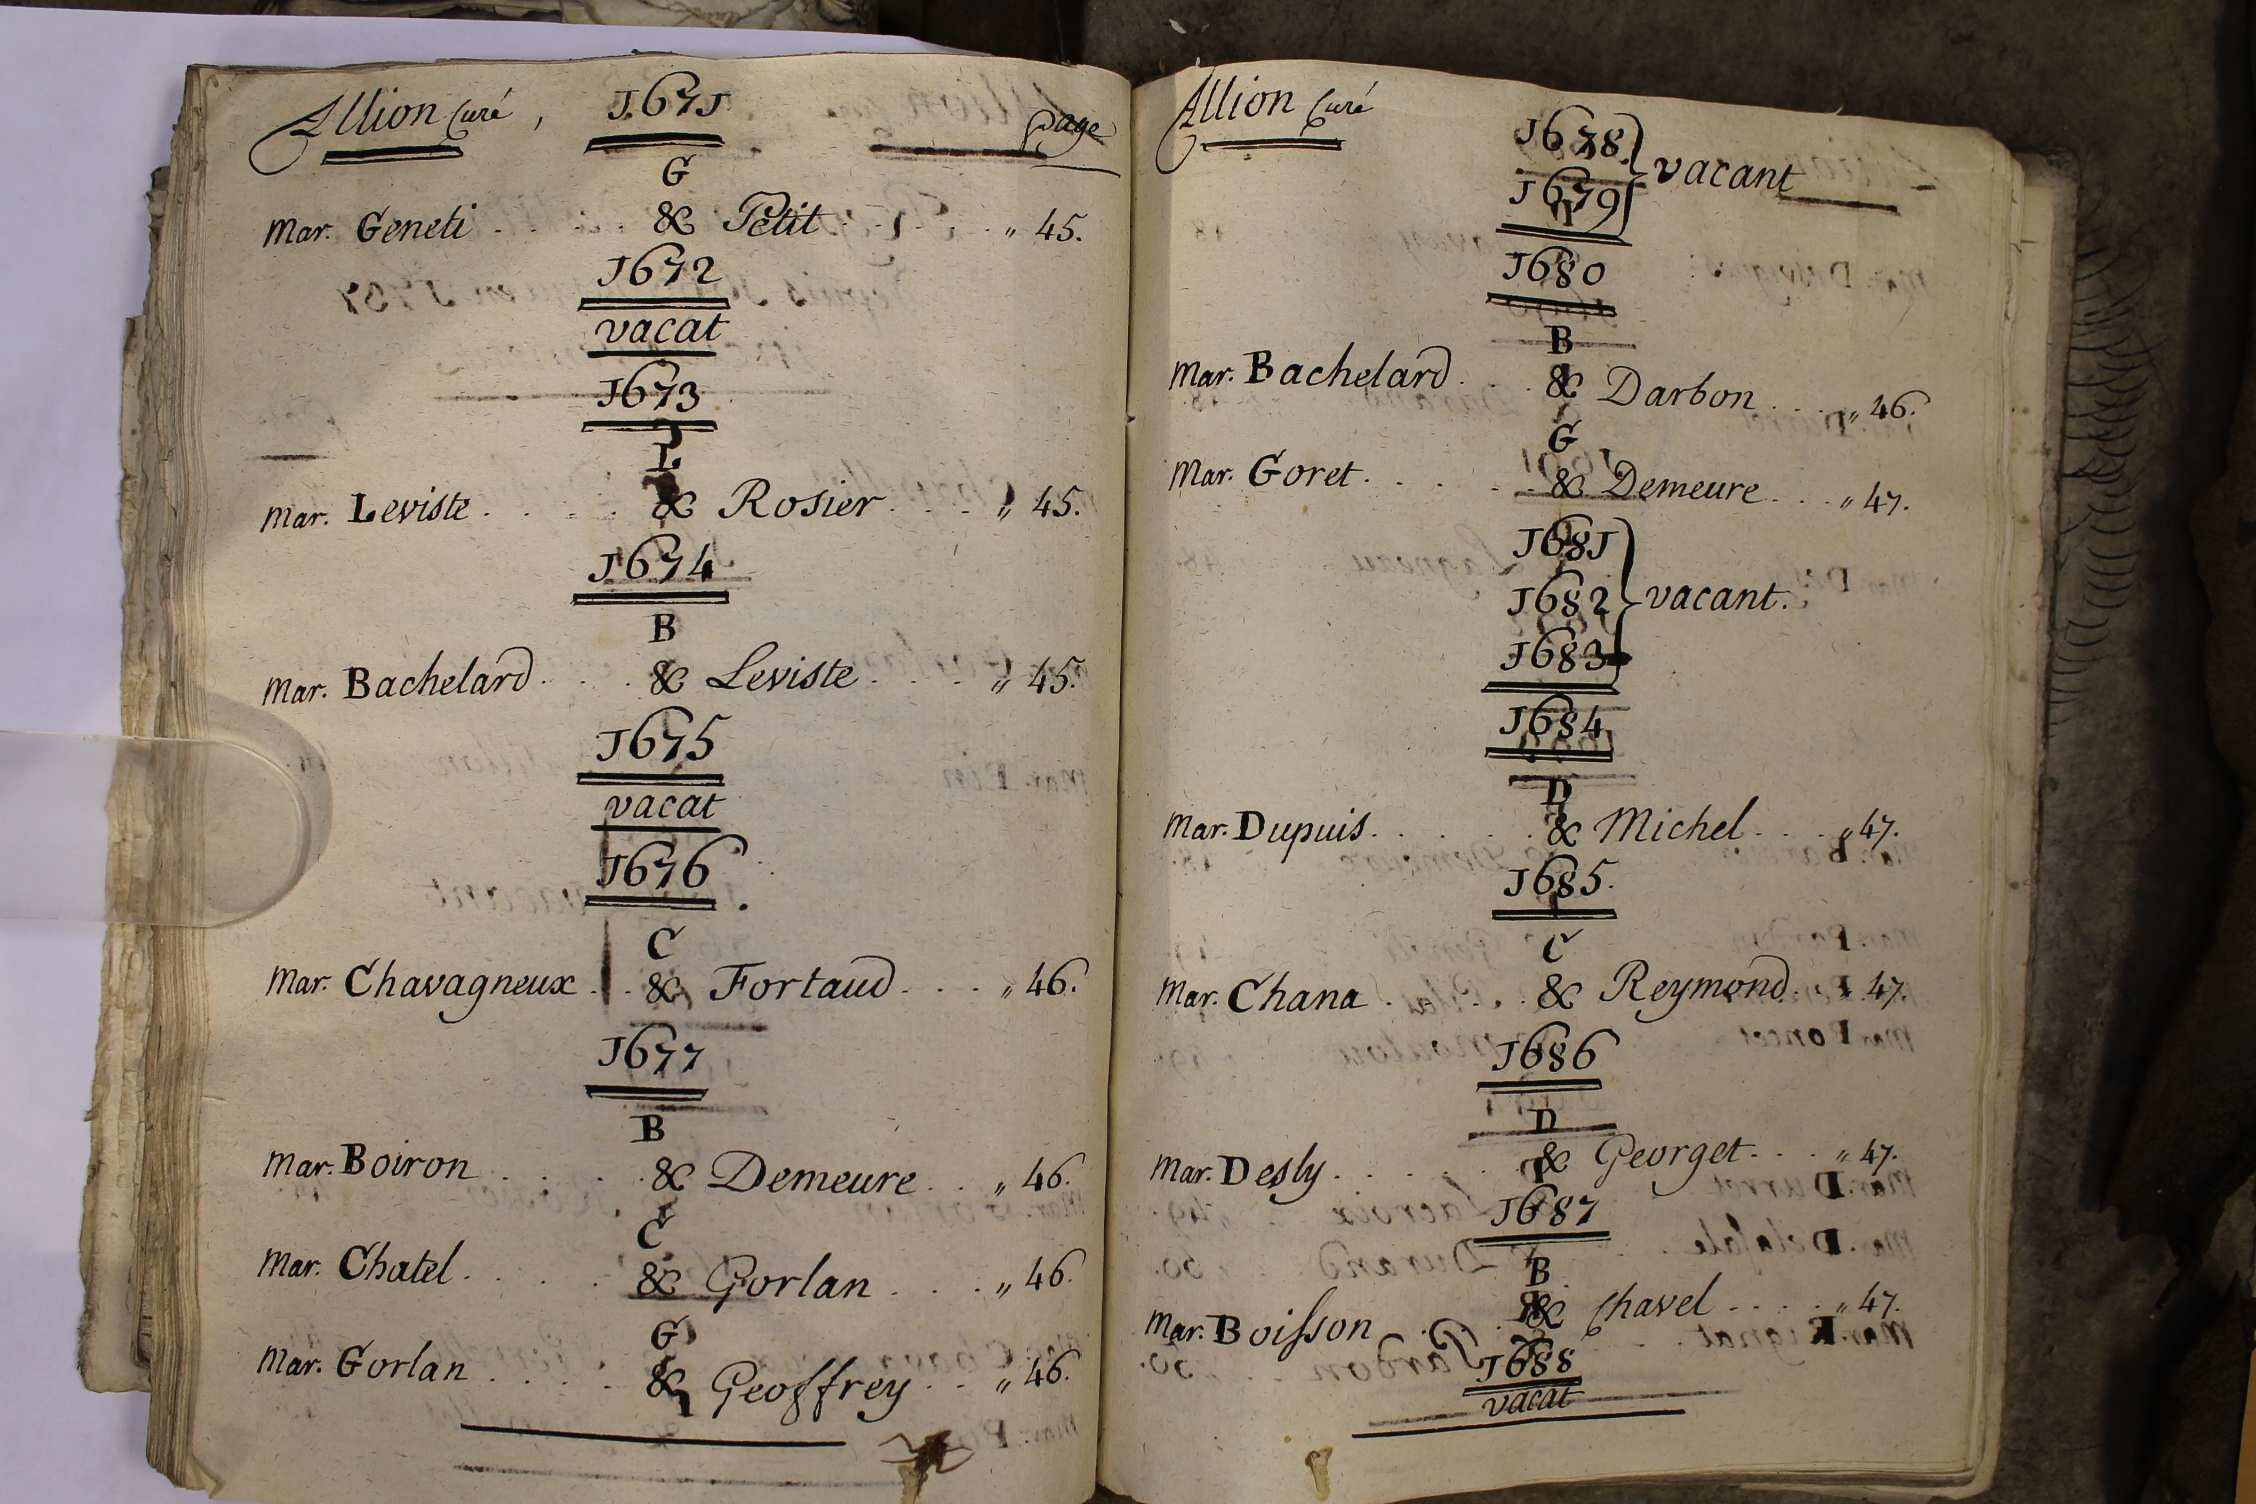 Allion Curé, 1671 Page
G
Mar. Geneti . . . . . & Petit . . . . . „ 45.
1672
vacat
1673
L
Mar. Leviste . . . . . & Rosier . . . . „ 45.
1674
B
Mar. Bachelard . . . . & Leviste . . . . „ 45.
1675
vacat
1676
C
Mar. Chavagneux . . & Fortaud . . . . „ 46.
1677
B
Mar. Boiron . . . . . & Demeure . . „ 46.
C
Mar. Chatel . . . . . & Gorlan . . . . „ 46.
G
Mar. Gorlan . . . . . & Geoffrey . . „ 46.
Allion Curé
1678.
1679 } vacant
1680
B
Mar. Bachelard . . . & Darbon . . . „ 46.
G
Mar. Goret . . . . . & Demeure . . . „ 47.
1681
1682 } vacant.
1683
1684
D
Mar. Dupuis . . . . . & Michel . . . „ 47.
1685.
C
Mar. Chana . . . . . & Reymond . . „ 47.
1686
D
Mar. Desly . . . . . . & Georget . . . „ 47.
1687
B
Mar. Boisson . . . & Chavel . . . . „ 47.
1688
vacat